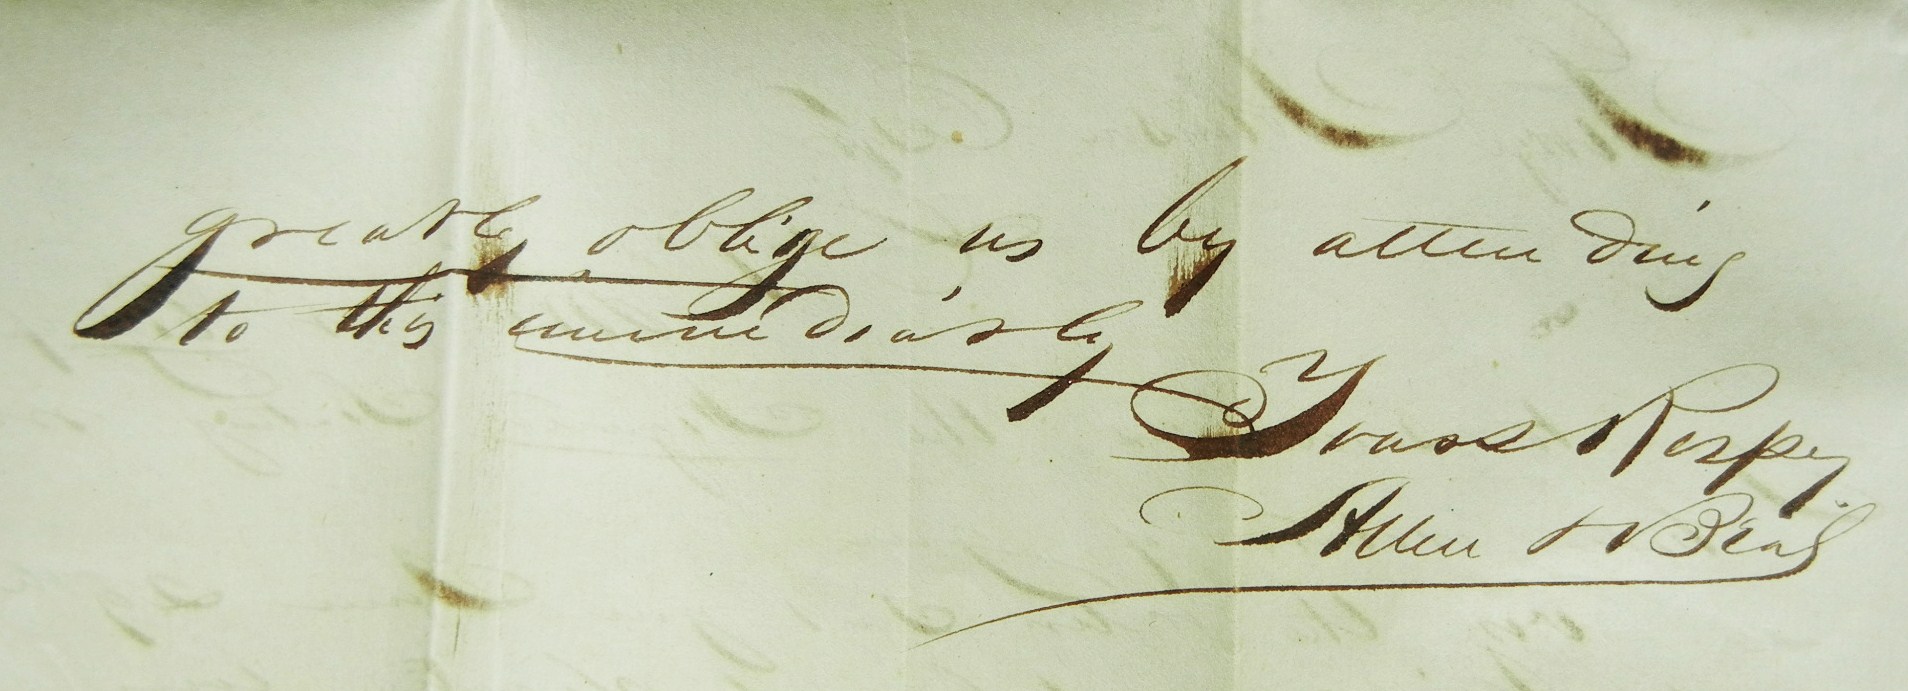 greatly oblige us by attending
to this immediately
Yours Respy
Allen & Beal